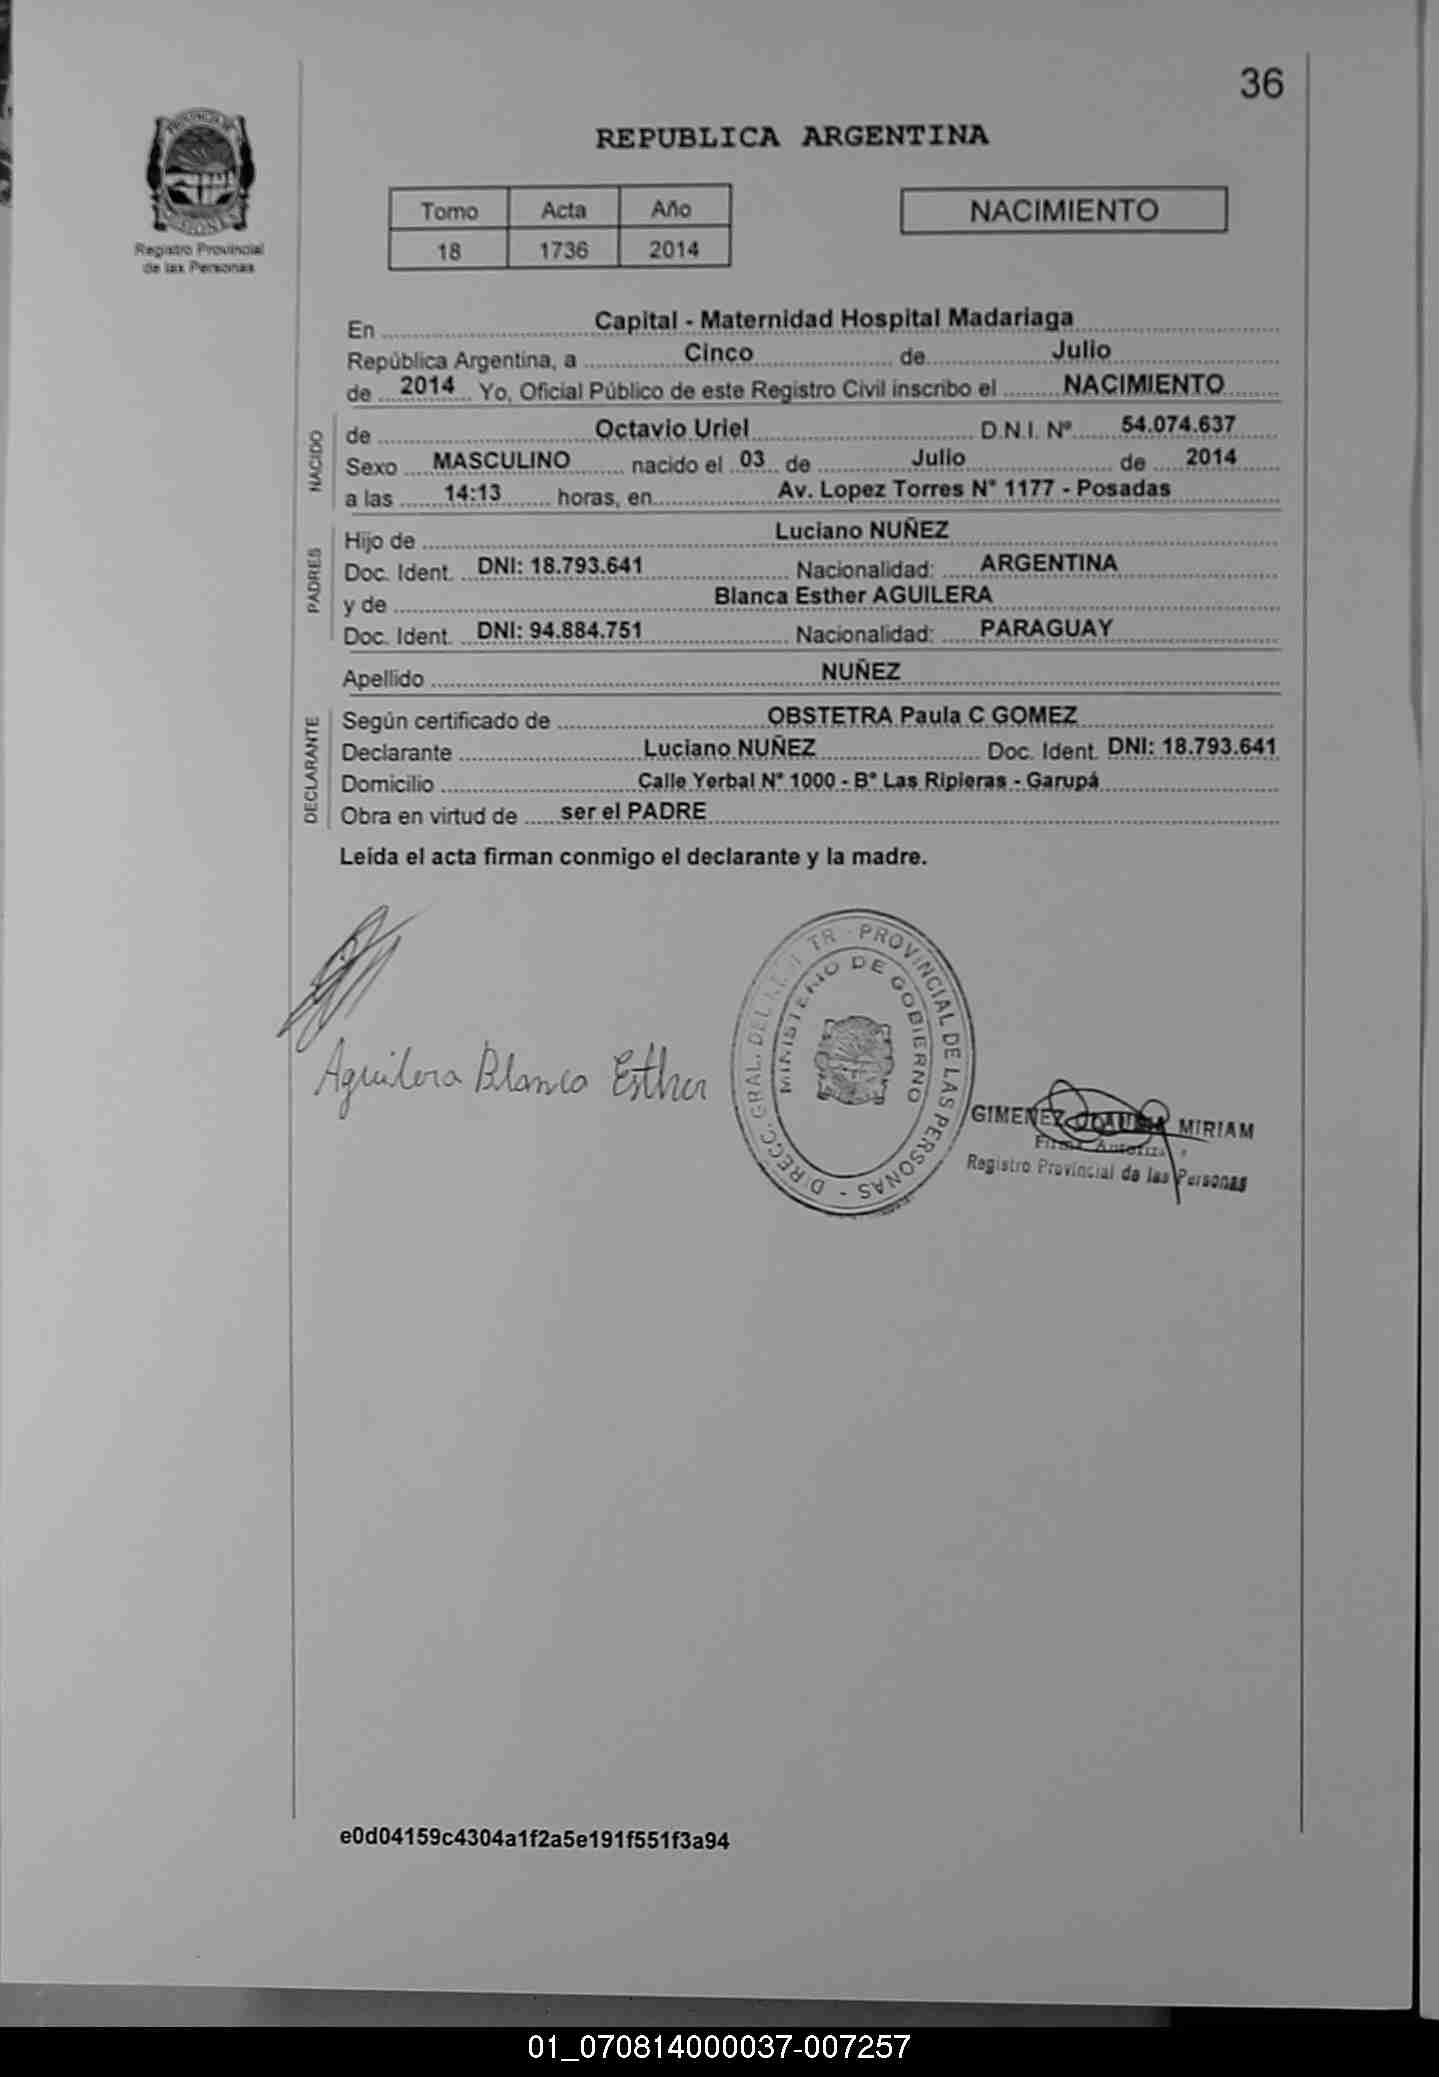 36
REPUBLICA ARGENTINA
Registro Provincial
de las Personas
Tomo Acta Año
18 1736 2014
NACIMIENTO
En Capital - Maternidad Hospital Madariaga
República Argentina, a Cinco de Julio
de 2014 Yo, Oficial Público de este Registro Civil inscribo el NACIMIENTO
NACIDO
de Octavio Uriel D.N.I. Nº 54.074.637
Sexo MASCULINO nacido el 03 de Julio de 2014
a las 14:13 horas, en Av. Lopez Torres N° 1177 - Posadas
PADRES
Hijo de Luciano NUÑEZ
Doc. Ident. DNI: 18.793.641 Nacionalidad: ARGENTINA
y de Blanca Esther AGUILERA
Doc. Ident. DNI: 94.884.751 Nacionalidad: PARAGUAY
Apellido NUÑEZ
DECLARANTE
Según certificado de OBSTETRA Paula C GOMEZ
Declarante Luciano NUÑEZ Doc. Ident. DNI: 18.793.641
Domicilio Calle Yerbal N° 1000 - B° Las Ripieras - Garupá
Obra en virtud de ser el PADRE
Leída el acta firman conmigo el declarante y la madre.
Aguilera Blanca Esther
DIRECC. GRAL. DEL PROVINCIAL DE LAS PERSONAS -
MINISTERIO DE GOBIERNO
GIMENEZ CLAUDIA MIRIAM
Firma
Registro Provincial de las Personas
e0d04159c4304a1f2a5e191f551f3a94
01_070814000037-007257